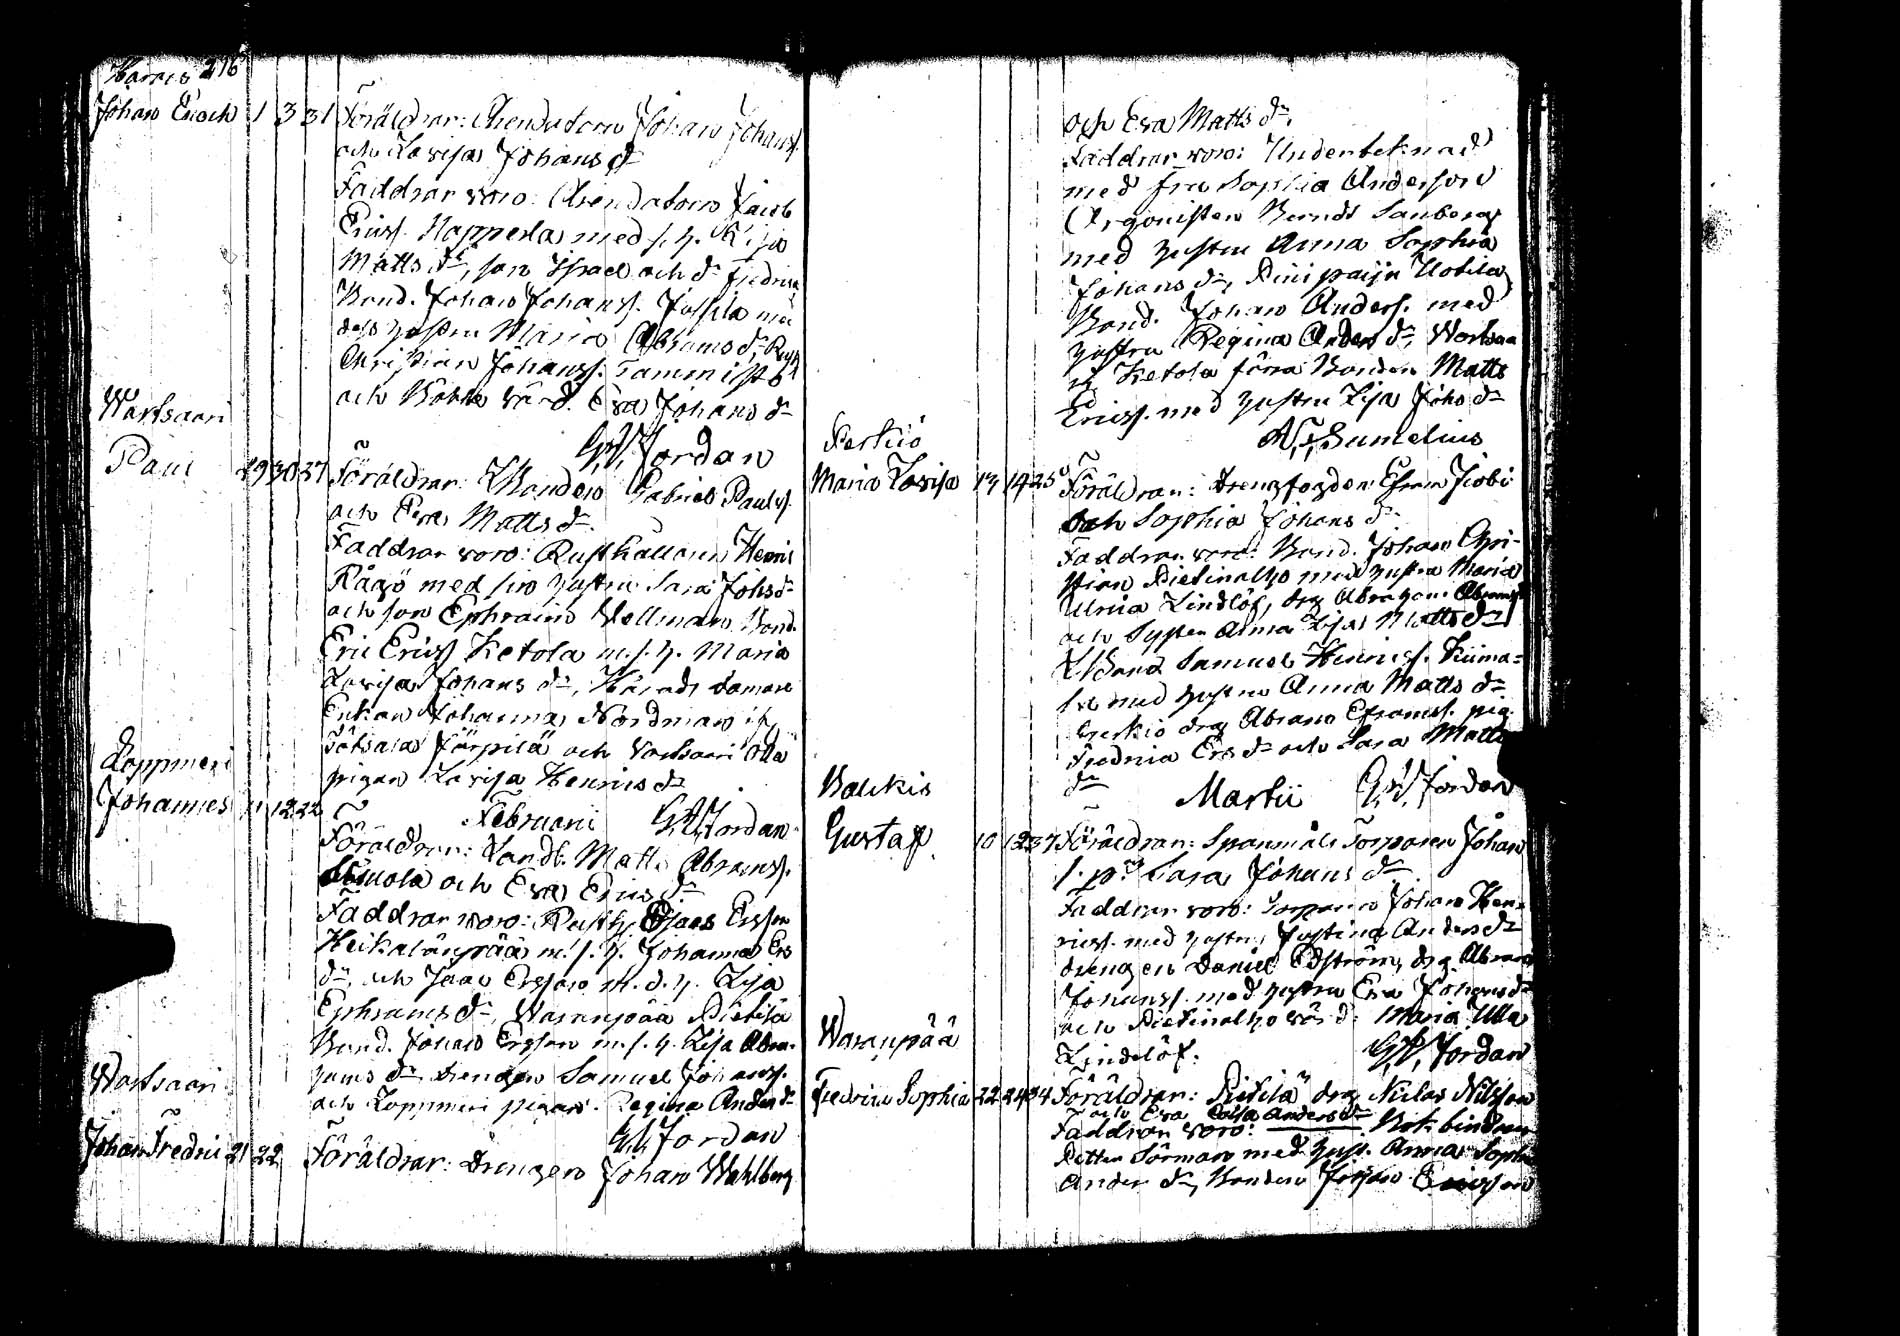 Harois 216
Johan Enoch 1 3 31 Föräldrar: Arendatorn Johan Johanss.
och Lovisa Johans dr
Faddrar voro: Arendatorn Jacob
Ericss. Happerla med s. h. Lisa
Matts dr, son Israel och dr Fredrica
Bond. Johan Johanss. Jussila med
dess hustru Maria Abrams dr, Rusth.
Christian Johanss. Tammisto
och Bonde värd. Eva Johans dr
G. W. Jordan
Wartsaari
Paul 29 30 37 Föräldrar: Bonden Gabriel Paulss.
och Eva Matts dr.
Faddrar voro: Rusthållaren Henric
Rågö med sin hustru Sara Johs dr
och son Ephraim Wellman, Bond.
Eric Ericss Ketola m. s. h. Maria
Lovisa Johans dr, Härads domare
Enkan Johanna Nordman ifr.
Tötsala Jörpilä och Wartsaari Olla
pigan Lovisa Henrics dr
Februarii G. W. Jordan
Loppmeri
Johannes 11 12 22
Föräldrar: Landb. Matts Abramss.
och Eva Erics dr
Faddrar voro: Rusth. Ersson
Heikolänpää m. s. h. Johanna Ers
dr, och Isaac Ersson m. d. h. Lisa
Ephraims dr, Waranpää Pietilä
Bond. Johan Ersson m. s. h. Lisa Abra-
hams dr drengen Samuel Johanss.
och Loppmeri pigan Regina Anders dr
G. W. Jordan
Wartsaari
Johan Fredric 21 22 Föräldrar: Drengen Johan Wahlberg
och Eva Matts dr.
Faddrar voro: Undertecknad
med fru Sophia Anderson
Organisten Berndt Sanberg
med hustru Anna Sophia
Johans dr, Uotila
Bond. Johan Anderss. med
hustru Regina Anders dr, Wartsaa
ri Ketola förra Bonden Matts
Ericss. med hustru Lisa Johs dr
Sumelius
Ferkiö
Maria Lovisa 13 14 25 Föräldrar: Drengfogden Efraim Jacobs
och Sophia Johans dr
Faddrar voro: Bond. Johan Chri-
stian Pietinalho med hustru Maria
Ulrica Lindlöf, drg Abraham Abramss
och Syster Anna Lisa Matts dr
Bond Samuel Henricss. Kiima-
la med hustru Anna Matts dr
Gerkiö drg Abram Eframss. pig.
Fredrica Ers dr och Sara Matts
dr G. W. Jordan
Martii
Balckis
Gustaf 10 12 37 Föräldrar: Spanmåls Torparen Johan
s. p. Sara Johans dr
Faddrar voro: Torparen Johan Hen-
ricss. med hustru Justina Anders dr
drengen Daniel Edström, drg Abram
Johanss. med hustru Eva Johans dr
och Pietinalho värd: Maria Ulla
Lindlöf. G. W. Jordan
Waranpää
Fredrica Sophia 22 24 34 Föräldrar: Pietilä drg Niclas Nilsson
och Eva Caisa Anders dr
Faddrar voro: Bokbindaren
Petter Sörman med hust. Anna Sophia
Anders dr, Bonden Johan Ericsson